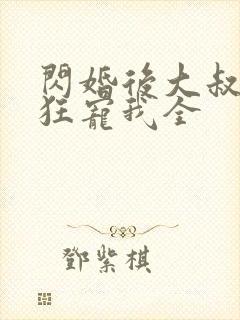 閃婚後大叔
狂寵我全
鄧紫棋